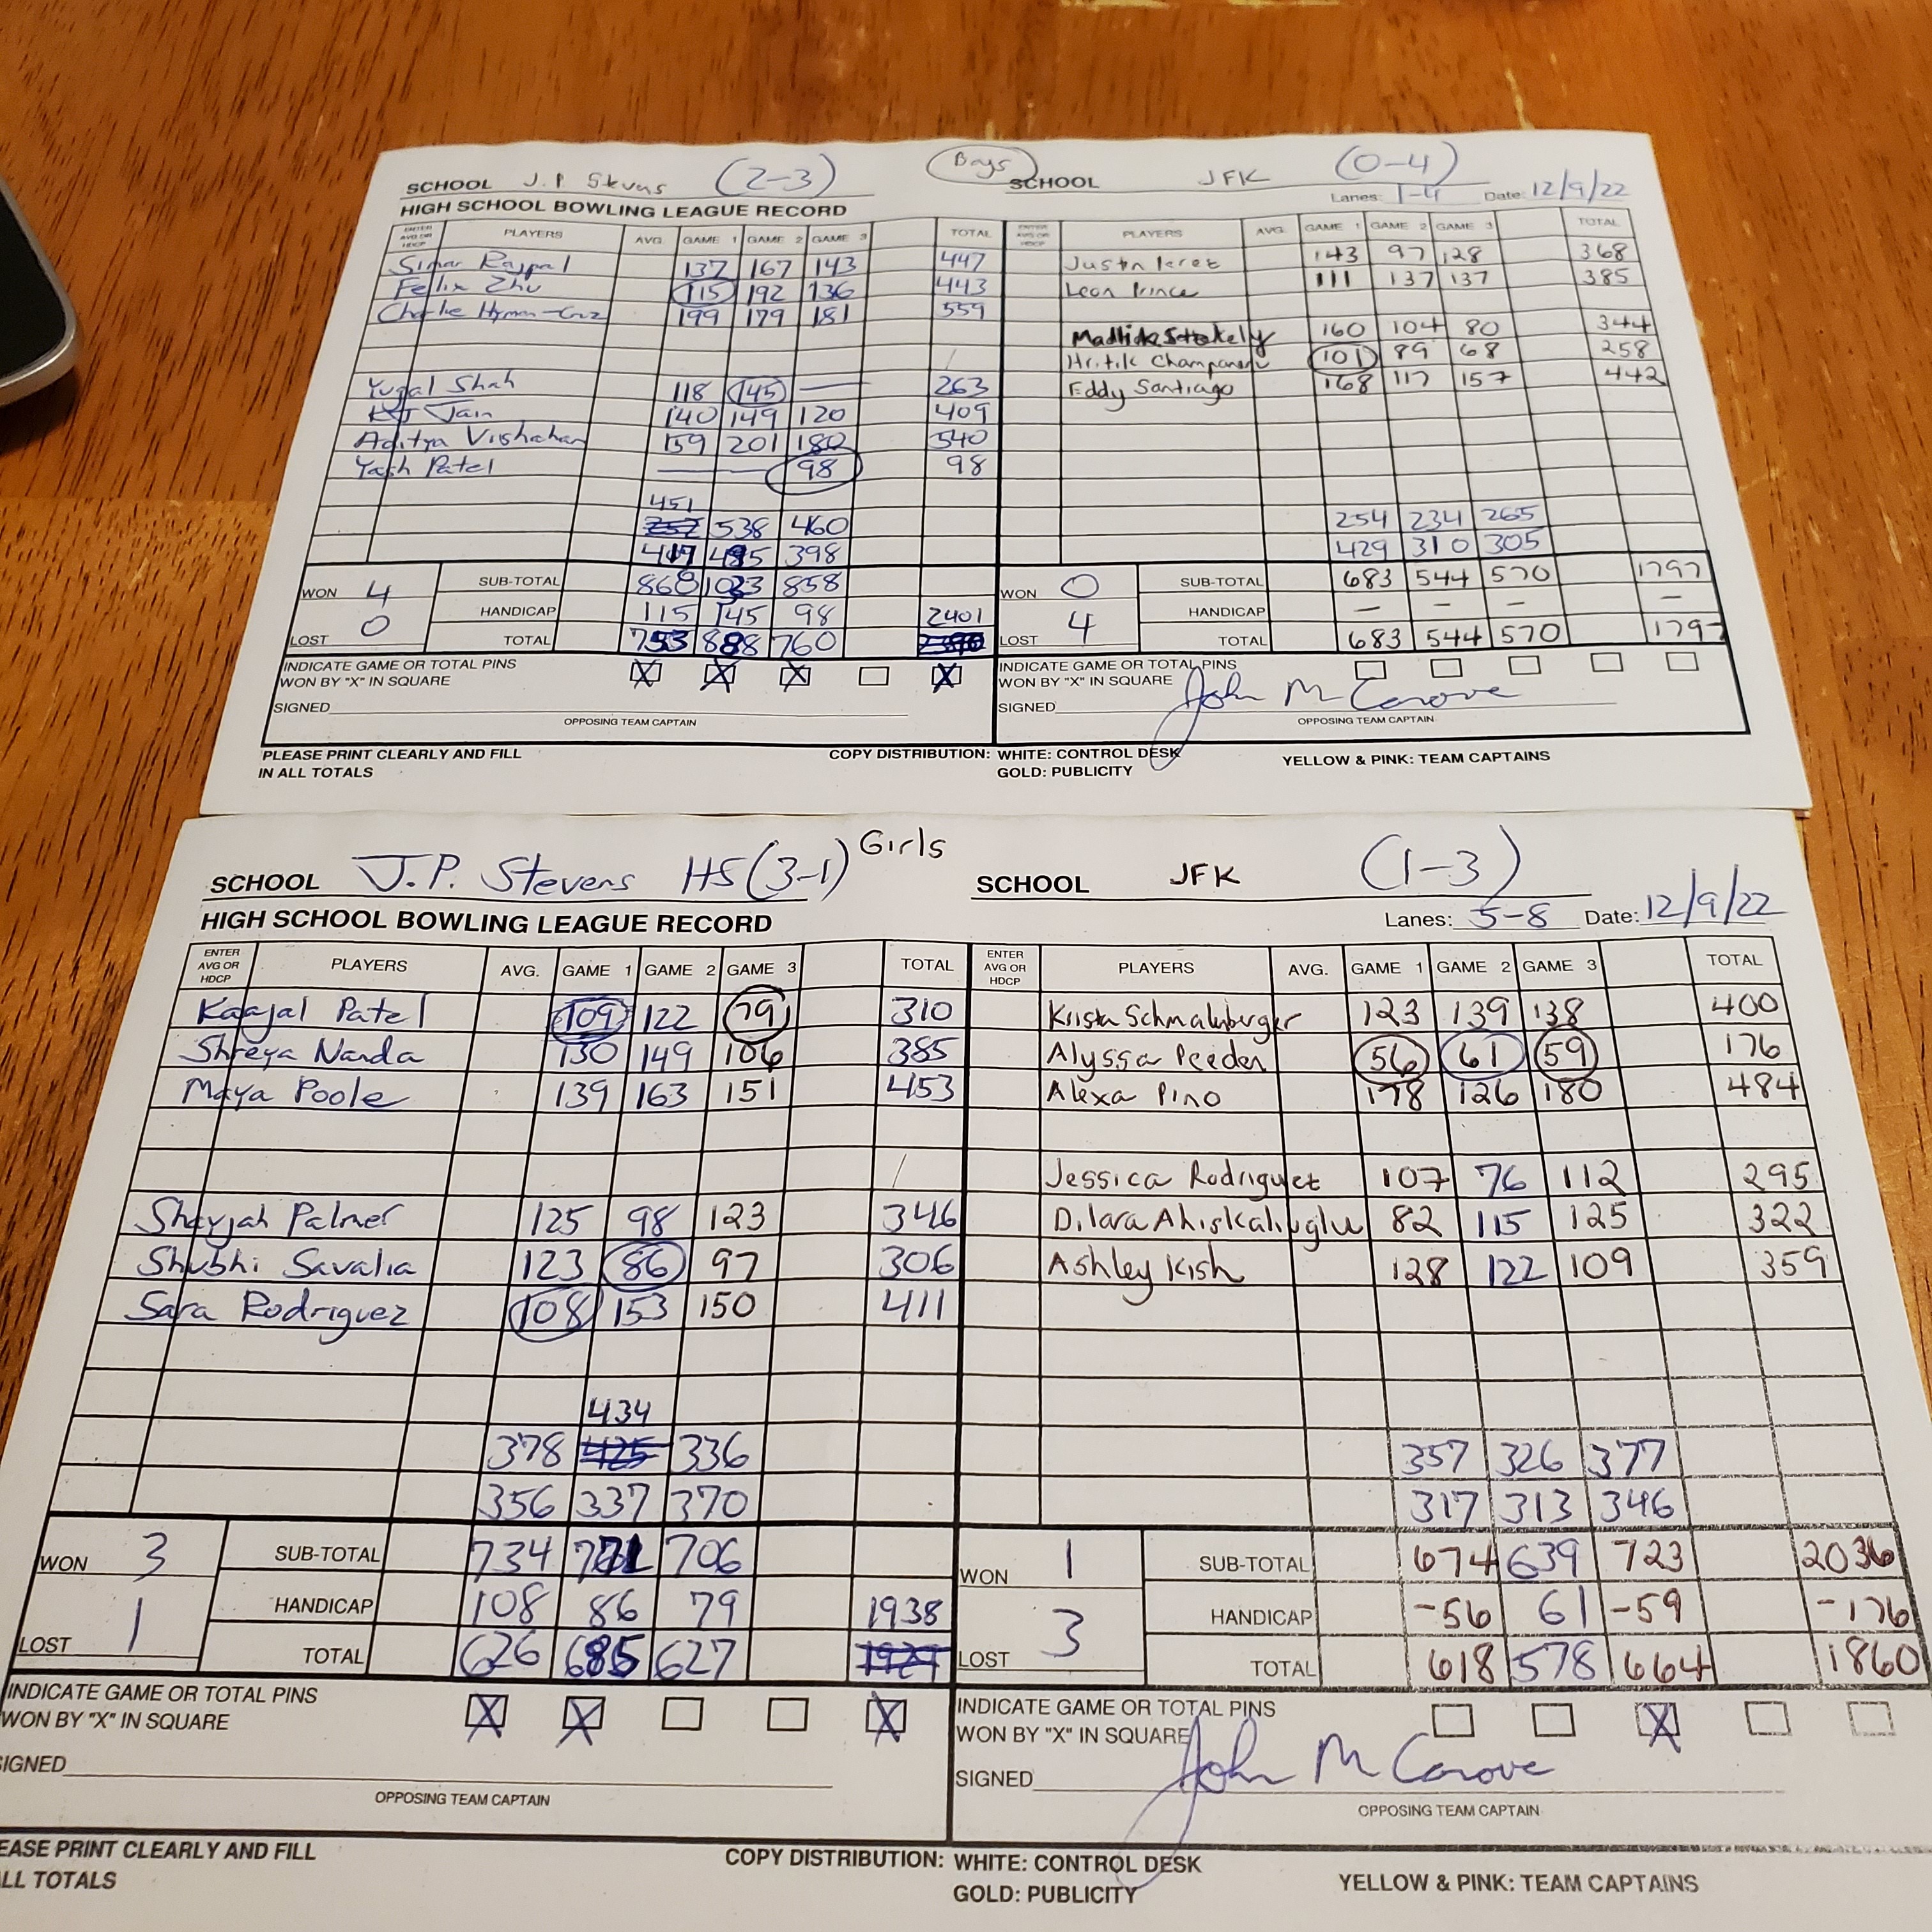 SCHOOL J.P. Stevens (2-3) Boys SCHOOL JFK (0-4)
HIGH SCHOOL BOWLING LEAGUE RECORD Lanes: 1-4 Date: 12/9/22
ENTER AVG OR HDCP PLAYERS AVG. GAME 1 GAME 2 GAME 3 TOTAL ENTER AVG OR HDCP PLAYERS AVG. GAME 1 GAME 2 GAME 3 TOTAL
Simar Rajpal 137 167 143 447 Justn 143 97 128 368
Felix Zhu 115 192 136 443 Leon Prince 111 137 137 385
Charlie Hyman-Cruz 199 179 181 559
Stokely 160 104 80 344
Hritik Champaneri 101 89 68 258
Yugal Shah 118 145 — 263 Eddy Santiago 168 117 157 442
Jain 140 149 120 409
Aditya 159 201 180 540
Yash Patel — — 98 98
451
257 538 460 254 234 265
417 495 398 429 310 305
WON 4 SUB-TOTAL 868 1033 858 WON 0 SUB-TOTAL 683 544 570 1797
HANDICAP 115 145 98 2401 HANDICAP — — — —
LOST 0 TOTAL 753 888 760 LOST 4 TOTAL 683 544 570 1797
INDICATE GAME OR TOTAL PINS X X X X INDICATE GAME OR TOTAL PINS
WON BY "X" IN SQUARE WON BY "X" IN SQUARE
SIGNED SIGNED John M Canove
OPPOSING TEAM CAPTAIN OPPOSING TEAM CAPTAIN
PLEASE PRINT CLEARLY AND FILL COPY DISTRIBUTION: WHITE: CONTROL DESK YELLOW & PINK: TEAM CAPTAINS
IN ALL TOTALS GOLD: PUBLICITY
SCHOOL J.P. Stevens HS (3-1) Girls SCHOOL JFK (1-3)
HIGH SCHOOL BOWLING LEAGUE RECORD Lanes: 5-8 Date: 12/9/22
ENTER AVG OR HDCP PLAYERS AVG. GAME 1 GAME 2 GAME 3 TOTAL ENTER AVG OR HDCP PLAYERS AVG. GAME 1 GAME 2 GAME 3 TOTAL
Kaajal Patel 109 122 79 310 Krista Schmalenberger 123 139 138 400
Shreya Nanda 130 149 106 385 Alyssa Peeden 56 61 59 176
Maya Poole 139 163 151 453 Alexa Pino 178 126 180 484
Jessica Rodriguez 107 76 112 295
Shayjah Palmer 125 98 123 346 Dilara Ahiskalioglu 82 115 125 322
Shubhi Savalia 123 86 97 306 Ashley Kish 128 122 109 359
Sara Rodriguez 108 153 150 411
434
378 425 336 357 326 377
356 337 370 317 313 346
WON 3 SUB-TOTAL 734 771 706 WON 1 SUB-TOTAL 674 639 723 2036
HANDICAP 108 86 79 1938 HANDICAP -56 61 -59 -176
LOST 1 TOTAL 626 685 627 1929 LOST 3 TOTAL 618 578 664 1860
INDICATE GAME OR TOTAL PINS X X X INDICATE GAME OR TOTAL PINS X
WON BY "X" IN SQUARE WON BY "X" IN SQUARE
SIGNED SIGNED John M Canove
OPPOSING TEAM CAPTAIN OPPOSING TEAM CAPTAIN
EASE PRINT CLEARLY AND FILL COPY DISTRIBUTION: WHITE: CONTROL DESK YELLOW & PINK: TEAM CAPTAINS
LL TOTALS GOLD: PUBLICITY